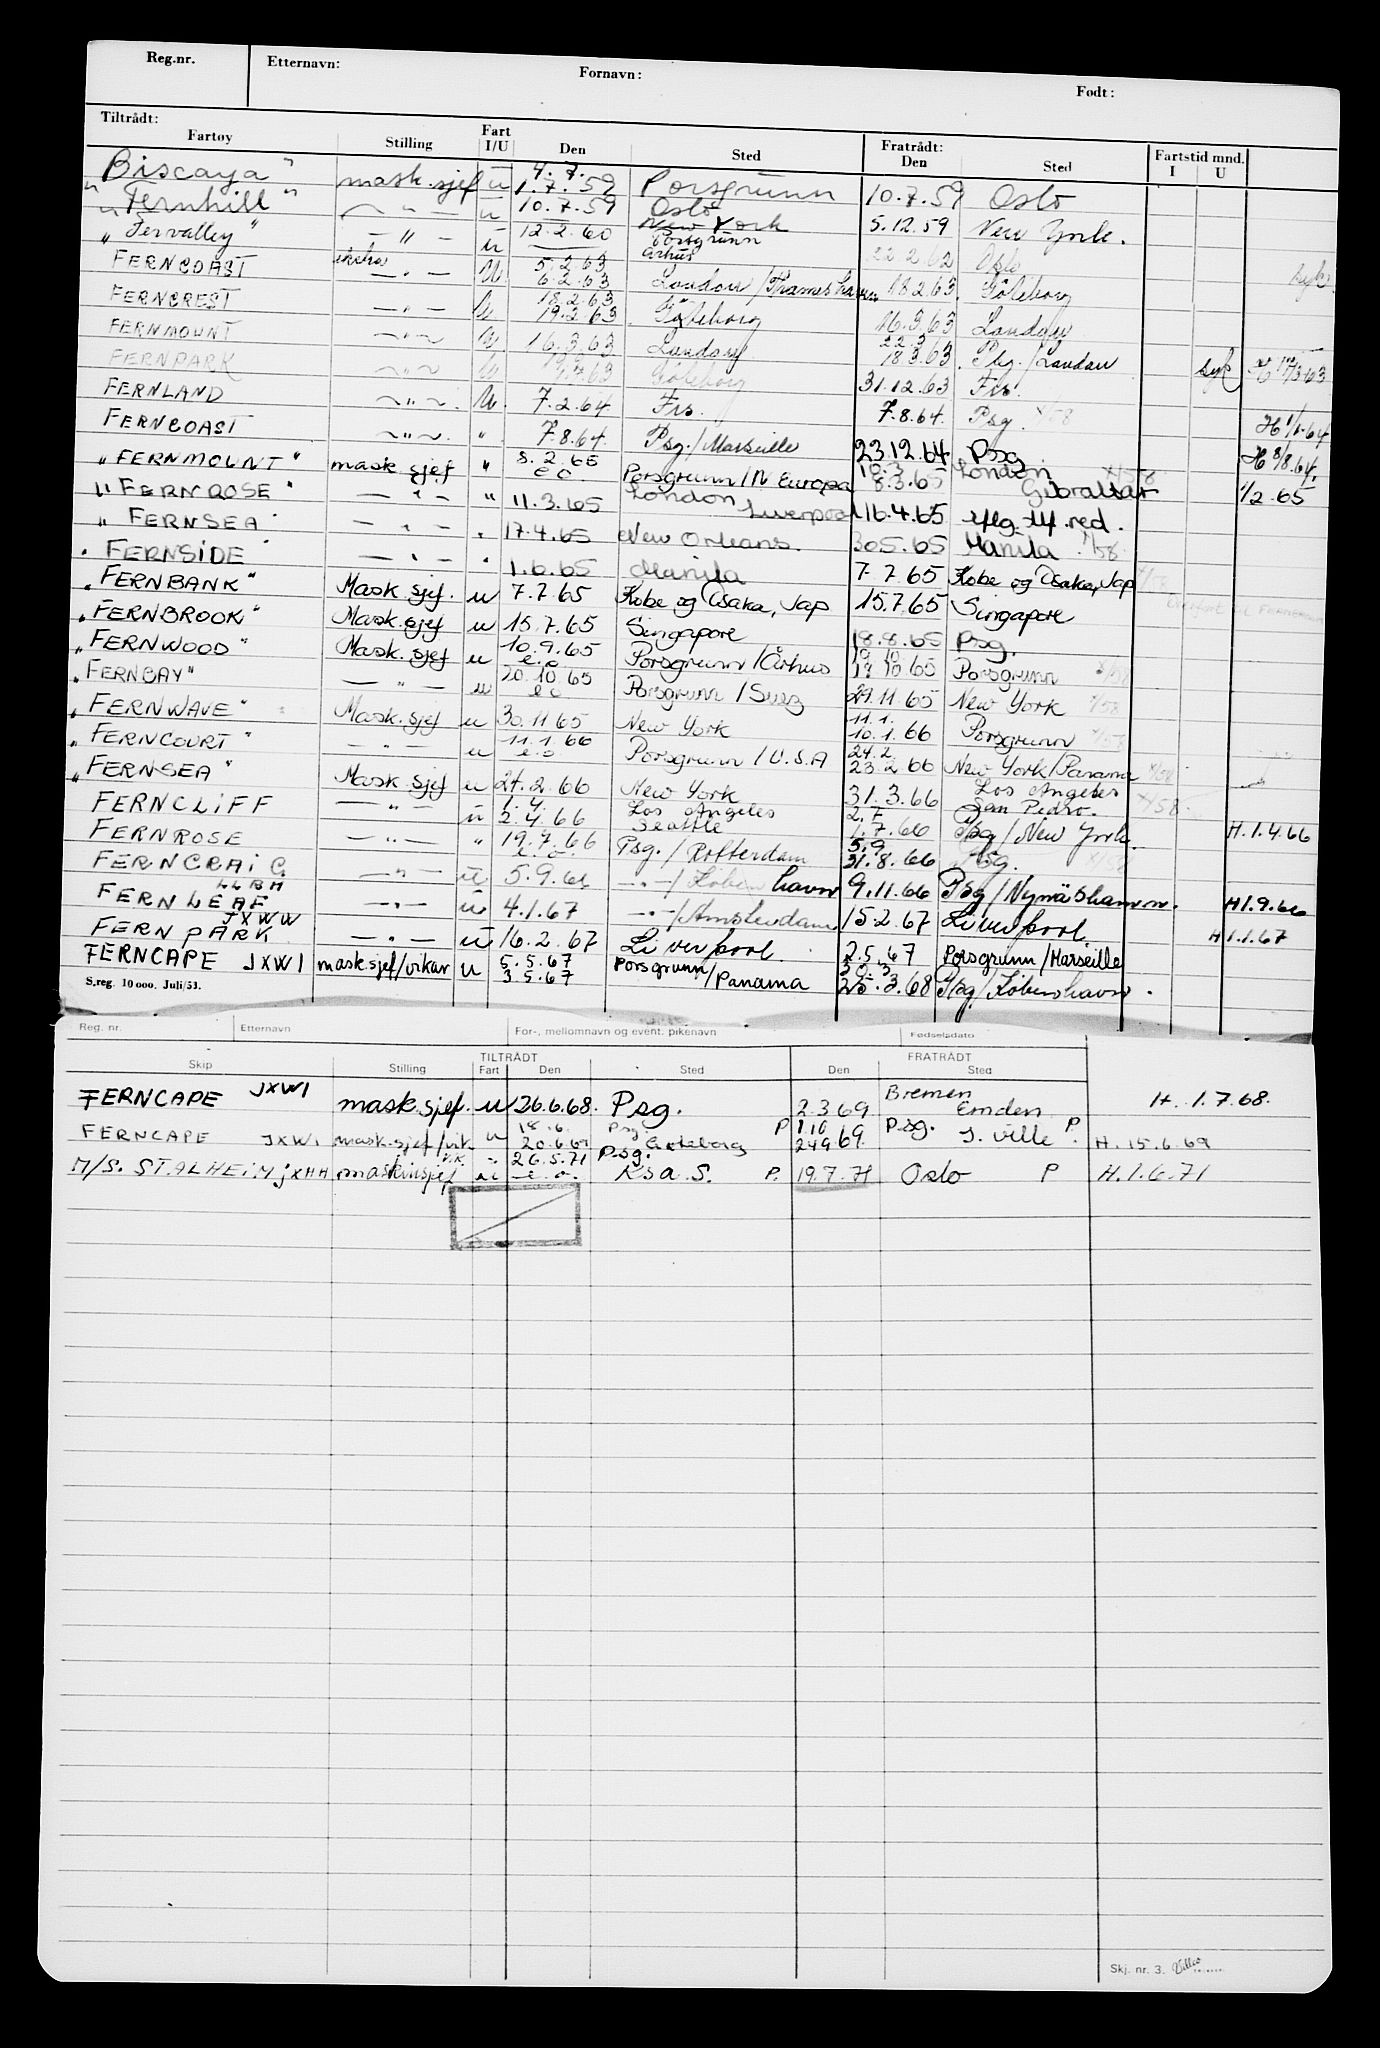 Reg.nr. Etternavn: Fornavn: Født:
Tiltrådt: Fratrådt: Fartstid mnd.
Fartøy Stilling Fart I/U Den Sted Den Sted I U
Biscaya" mask.sjef u 4.7. 1.7.59 Porsgrunn 10.7.59 Oslo
" Fernhill " — " — u 10.7.59 Oslo New York 5.12.59 New York.
" Fervalley " — " — u 12.2.60 Porsgrunn 22.2.62 Oslo syk.
FERNCOAST ekstra — " — U. 5.2.63 6.2.63 Århus London/Thameshaven 18.2.63. Göteborg
FERNCREST — " — U 18.2.63 19.2.63 Göteborg 16.3.63 London
FERNMOUNT — " — U 16.3.63 London 22.3 18.3.63 Pbg./London syk
FERNPARK — " — U Göteborg 31.12.63 Frs.
FERNLAND — " — . U. 7.2.64. Frs. 7.8.64. Psg. H 1/1.64
FERNCOAST — " — . " 7.8.64. Psg./Marseille 23.12.64 Psg. H 8/8.64.
" FERNMOUNT " mask.sjef " 8.2.65 e.o. Porsgrunn/N Europa 10.3 8.3.65 London Gibraltar 1/2.65
" FERNROSE " — " — " 11.3.65 London Liverpool 16.4.65 iflg. tlf. red.
" FERNSEA " — " — " 17.4.65 New Orleans. 30.5.65 Manila
" FERNSIDE — " — " 1.6.65 Manila 7.7.65 Kobe og Osaka, Jap
" FERNBANK " Mask.sjef. u 7.7.65 Kobe og Osaka, Jap 15.7.65 Singapore
" FERNBROOK " Mask.sjef u 15.7.65 Singapore 18.8.65 Psg.
" FERNWOOD " Mask.sjef u 10.9.65 e.o Porsgrunn/Århus 19.10. 18.10.65 Porsgrunn
" FERNBAY " — " — u 20.10.65 e.o Porsgrunn/Suez 29.11.65 New York
" FERNWAVE " Mask.sjef u 30.11.65 New York 11.1. 10.1.66 Porsgrunn
" FERNCOURT " — " — u 11.1.66 e.o Porsgrunn/U.S.A 24.2. 23.2.66 New York/Panama
" FERNSEA " Mask.sjef u 24.2.66 New York 31.3.66 Los Angeles San Pedro.
FERNCLIFF — " — u 1.4. 2.4.66 Los Angeles Seattle 2.7 1.7.66 Psg/New York. H.1.4.66
FERNROSE — " — " 19.7.66 e.o. Psg./Rotterdam 5.9. 31.8.66 Psg.
FERNCRAIG — " — u 5.9.66 — " —/København 9.11.66 Psg/Nynäshamn. H1.9.66
FERNLEAF LLBH — " — u 4.1.67 — " —/Amsterdam 15.2.67 Liverpool. H1.1.67
FERNPARK JXWW — " — u 16.2.67 Liverpool. 2.5.67 Porsgrunn/Marseille
FERNCAPE JXWI mask.sjef/vikar u 5.5.67 3.5.67 Porsgrunn/Panama 30.3 25.3.68 Psg/København.
S.reg. 10 000. Juli/53.
Reg. nr. Etternavn For-, mellomnavn og event. pikenavn Fødselsdato
TILTRÅDT FRATRÅDT
Skip Stilling Fart Den Sted Den Sted
FERNCAPE JXWI mask.sjef. u 26.6.68. Psg. 2.3.69 Bremen Emden H. 1.7.68.
FERNCAPE JXWI mask.sjef/vik. u 18.6. 20.6.69 Psg Göteborg P 1.10 24.9.69. Psg. J.ville P. H. 15.6.69
M/S. STALHEIM JXHH maskinsjef u 26.5.71 e.o. Psg. Ksa. S. P. 19.7.71 Oslo P H.1.6.71
Skj. nr. 3.